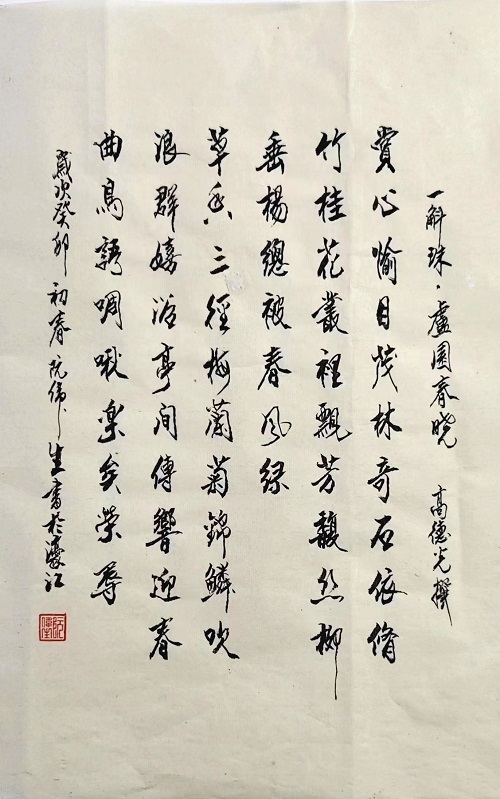 一斛珠·盧園春曉 高德光撰
賞心愉目茂林奇石依脩
竹桂花叢裡飄芳馥絲柳
垂楊總被春风绿
草色三徑梅蘭菊錦鱗吹
浪群嬉游亭间傳響迎春
曲鳥語啁哦樂矣榮辱
歲次癸卯初春阮偉生書於濠江